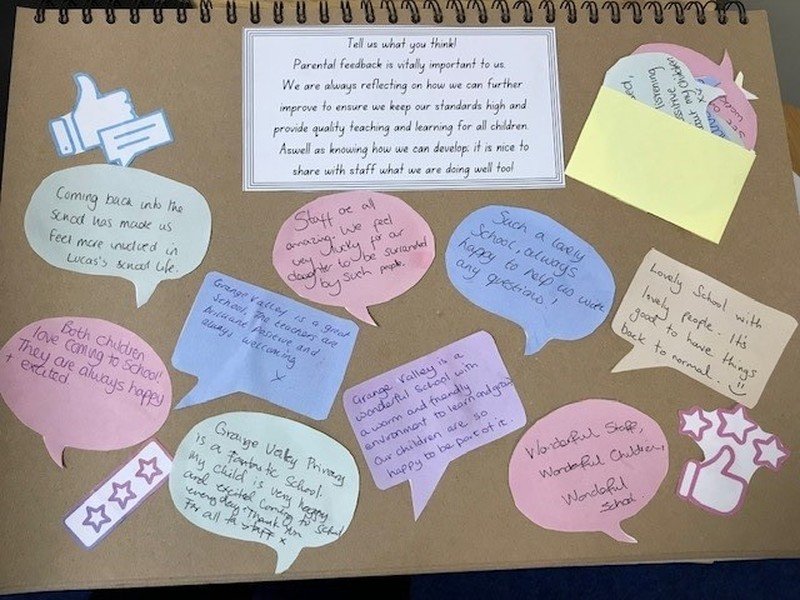 Tell us what you think!
Parental feedback is vitally important to us.
We are always reflecting on how we can further
improve to ensure we keep our standards high and
provide quality teaching and learning for all children.
Aswell as knowing how we can develop; it is nice to
share with staff what we are doing well too!
Coming back into the
school has made us
feel more involved in
Lucas's school life.
Staff are all
amazing. We feel
very lucky for our
daughter to be surrounded
by such people.
Such a lovely
School, always
happy to help us with
any questions!
Lovely School with
lovely people. It's
good to have things
back to normal.
Both children
love coming to school!
They are always happy
+ excited
Grange Valley is a great
School. The teachers are
brilliant, Positive and
always welcoming
x
Grange Valley is a
wonderful School with
a warm and friendly
environment to learn and grow
our children are so
happy to be part of it.
Grange Valley Primary
is a fantastic School.
my child is very happy
and excited coming to School
every day. Thank you
for all ta staff x
Wonderful Staff,
Wonderful Children,
Wonderful
School.